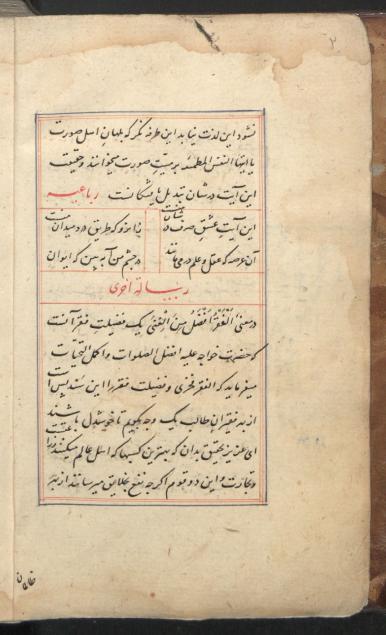 نشود این لذت نیابد این طرفه نگر که جهان اهل صورت
یا ایتها النفس المطمئنه بر میت صورت میخوانند و حقیقت
این آیت در شان تبدیل رباعیه
این آیت عشق صرف در شان
آن عرصه که عقل و علم در می‌مانند در چشم من آ ببین که ایوان
رسالة اخری
در معنی الفقر افضل من الغنی یک فضیلت فقر آنست
که حضرت خواجه علیه افضل الصلوات و اکمل التحیات
میفرماید که الفقر فخری و فضیلت فقر را این سند بس است
از بهر فقیران طالب یک وجه بگویم تا خوشدل باشند
ای عزیز تحقیق بدان که بهترین کسبها که اهل عالم میکنند زراعتست
و تجارت و این دو قوم اگرچه نفع بخلایق میرسانند از بهر